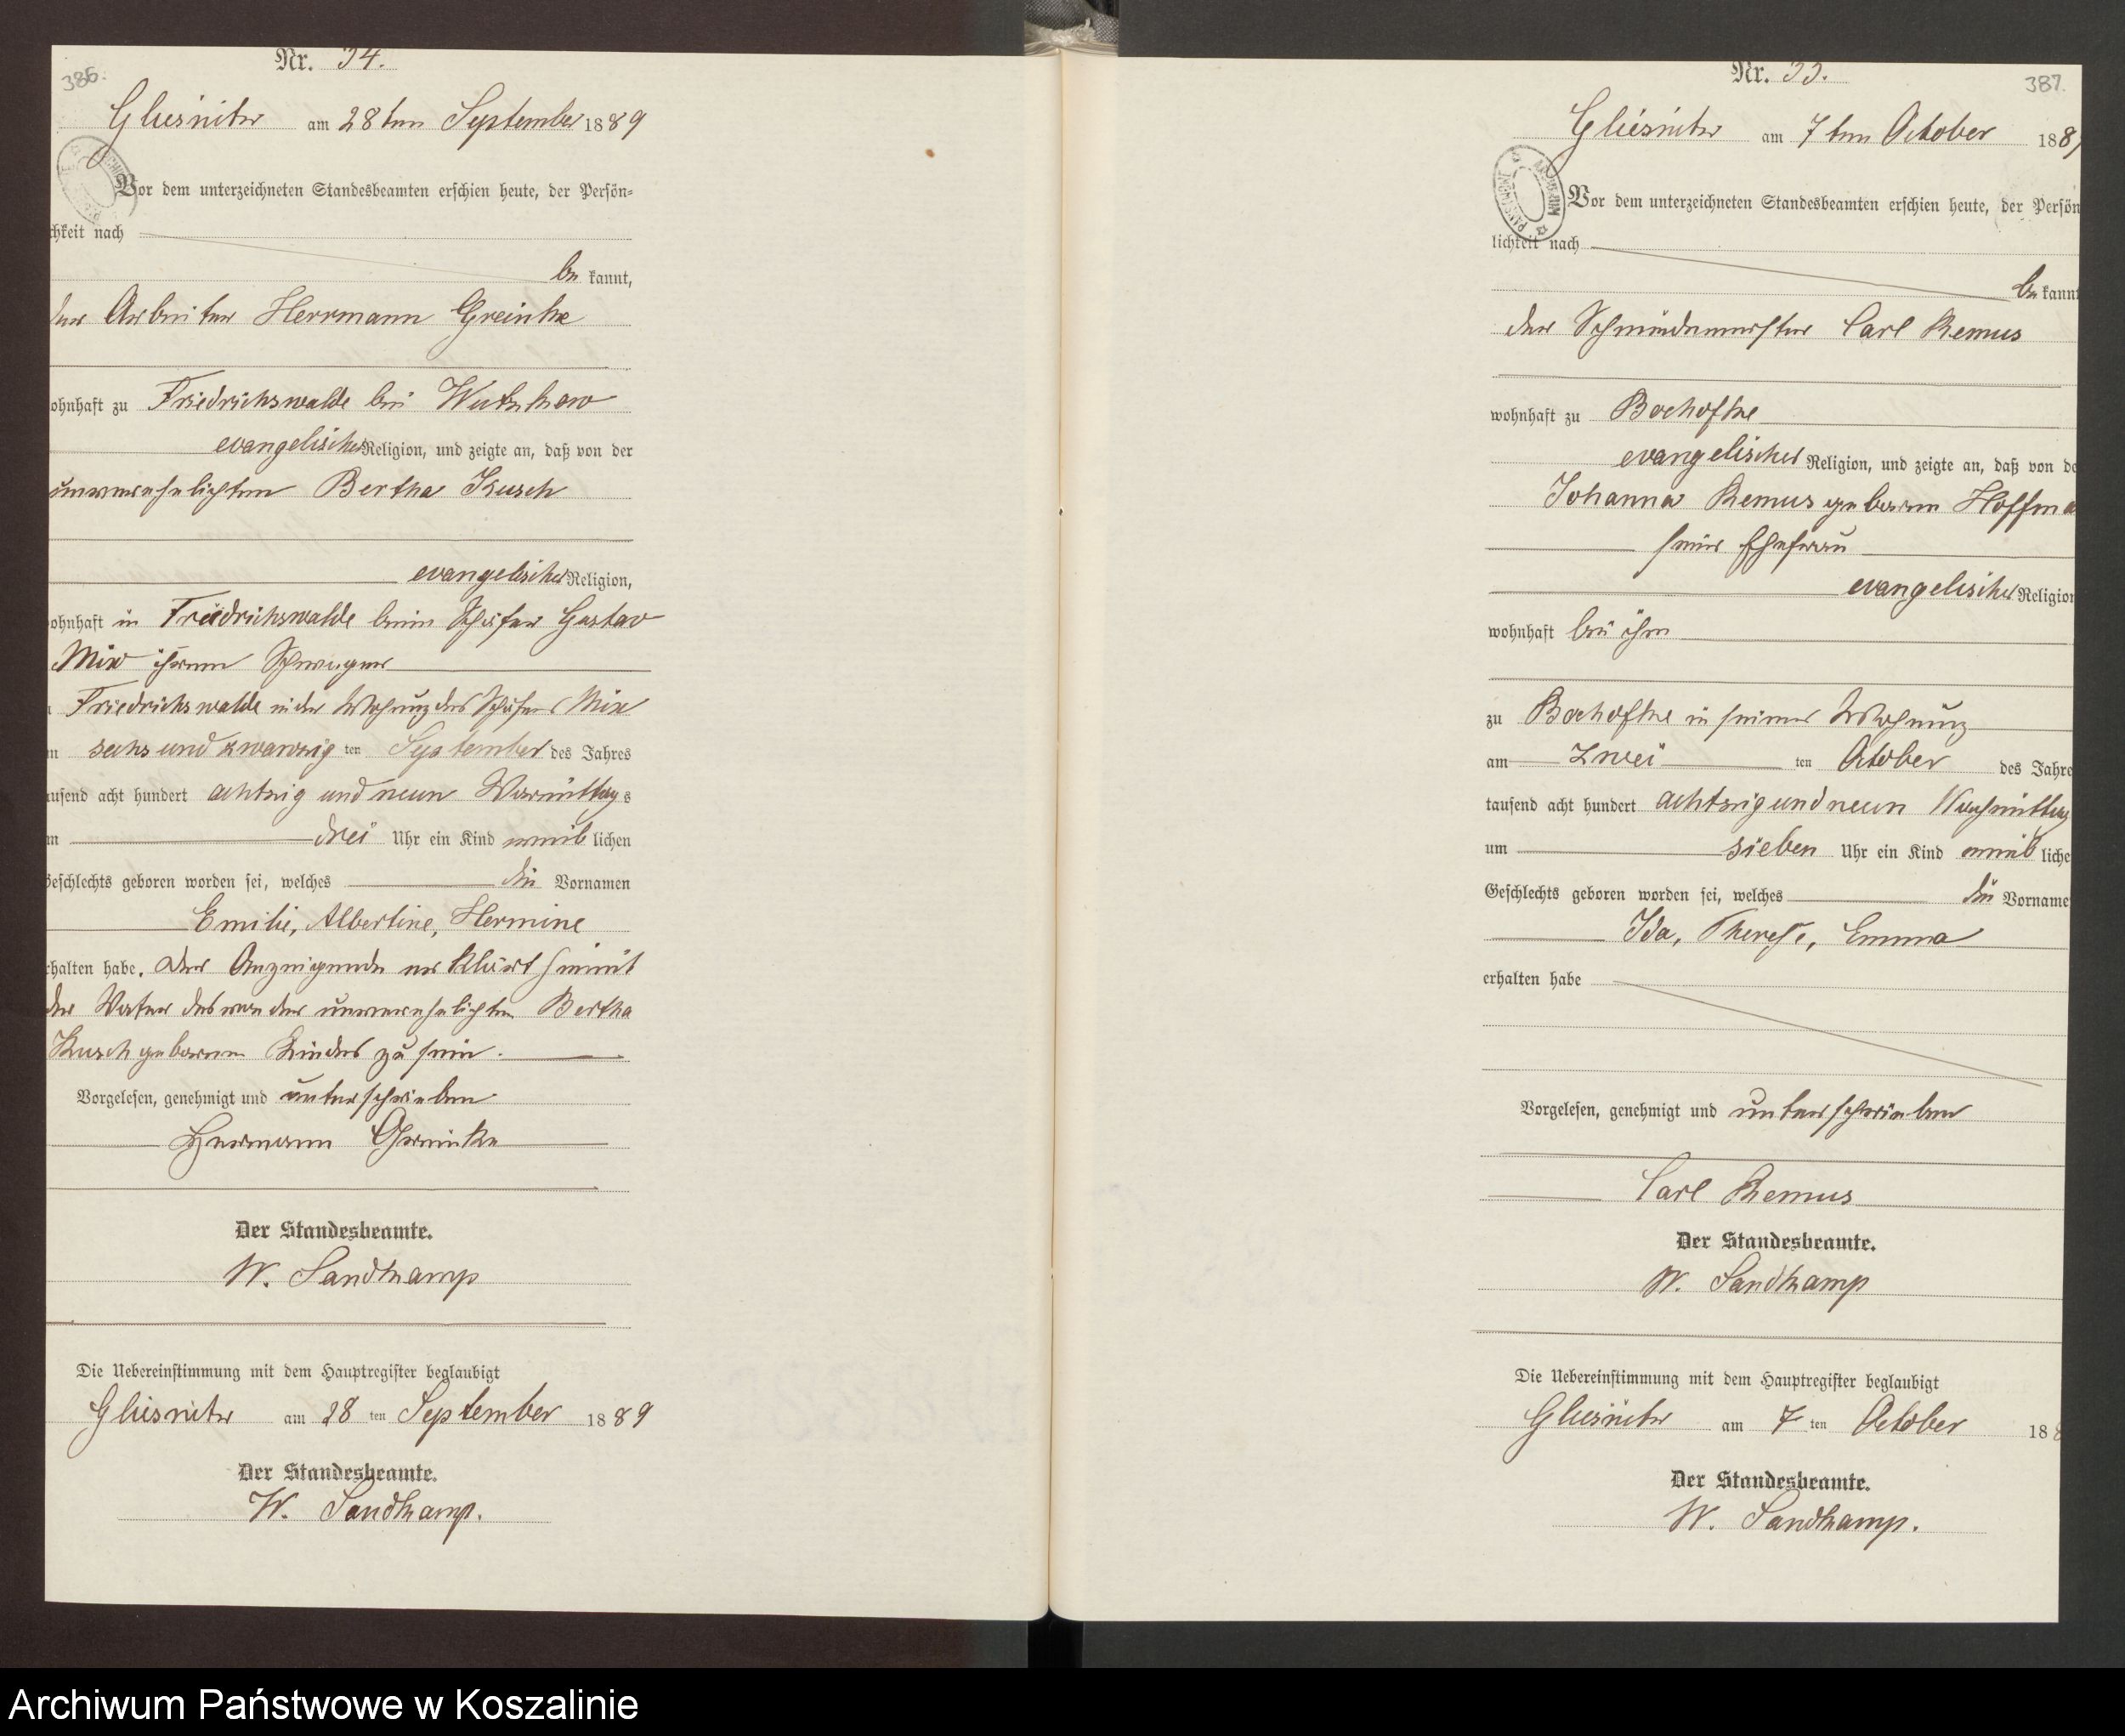 386.
Nr. 34.
Gliesnitz am 28ten September 1889
Vor dem unterzeichneten Standesbeamten erschien heute, der Persön-
chkeit nach
be kannt,
der Arbeiter Herrmann Greinke
ohnhaft zu Friedrichswalde bei Wutzkow
evangelischer Religion, und zeigte an, daß von der
unverehelichten Bertha Kusch
evangelischer Religion,
ohnhaft in Friedrichswalde beim Schäfer Gustav
Mix ihrem Schwager
Friedrichswalde in der Wohnung des Schäfers Mix
sechs und zwanzig ten September des Jahres
ausend acht hundert achtzig und neun Vormittags
drei Uhr ein Kind weib lichen
Geschlechts geboren worden sei, welches die Vornamen
Emilie, Albertine, Hermine
rhalten habe. Der Anzeigende erklärt hiermit
der Vater des von der unverehelichten Bertha
Kusch geborenen Kindes zu sein.
Vorgelesen, genehmigt und unterschrieben
Hermann Greinke
Der Standesbeamte.
W. Sandkamp
Die Uebereinstimmung mit dem Hauptregister beglaubigt
Gliesnitz am 28 ten September 1889
Der Standesbeamte.
W. Sandkamp.
387.
Nr. 35.
Gliesnitz am 7ten October 188
Vor dem unterzeichneten Standesbeamten erschien heute, der Persön
lichkeit nach
be kannt
der Schmiedemeister Carl Remus
wohnhaft zu Bochofke
evangelischer Religion, und zeigte an, daß von de
Johanna Remus geboren Hoffma
seiner Ehefrau
evangelischer Religion
wohnhaft bei ihm
zu Bochofke in seiner Wohnung
am zwei ten October des Jahre
tausend acht hundert achtzig und neun Nachmittag
um sieben Uhr ein Kind weib liche
Geschlechts geboren worden sei, welches die Vorname
Ida, Therese, Emma
erhalten habe
Vorgelesen, genehmigt und unterschrieben
Carl Remus
Der Standesbeamte.
W. Sandkamp
Die Uebereinstimmung mit dem Hauptregister beglaubigt
Gliesnitz am 7 ten October 188
Der Standesbeamte.
W. Sandkamp.
Archiwum Państwowe w Koszalinie